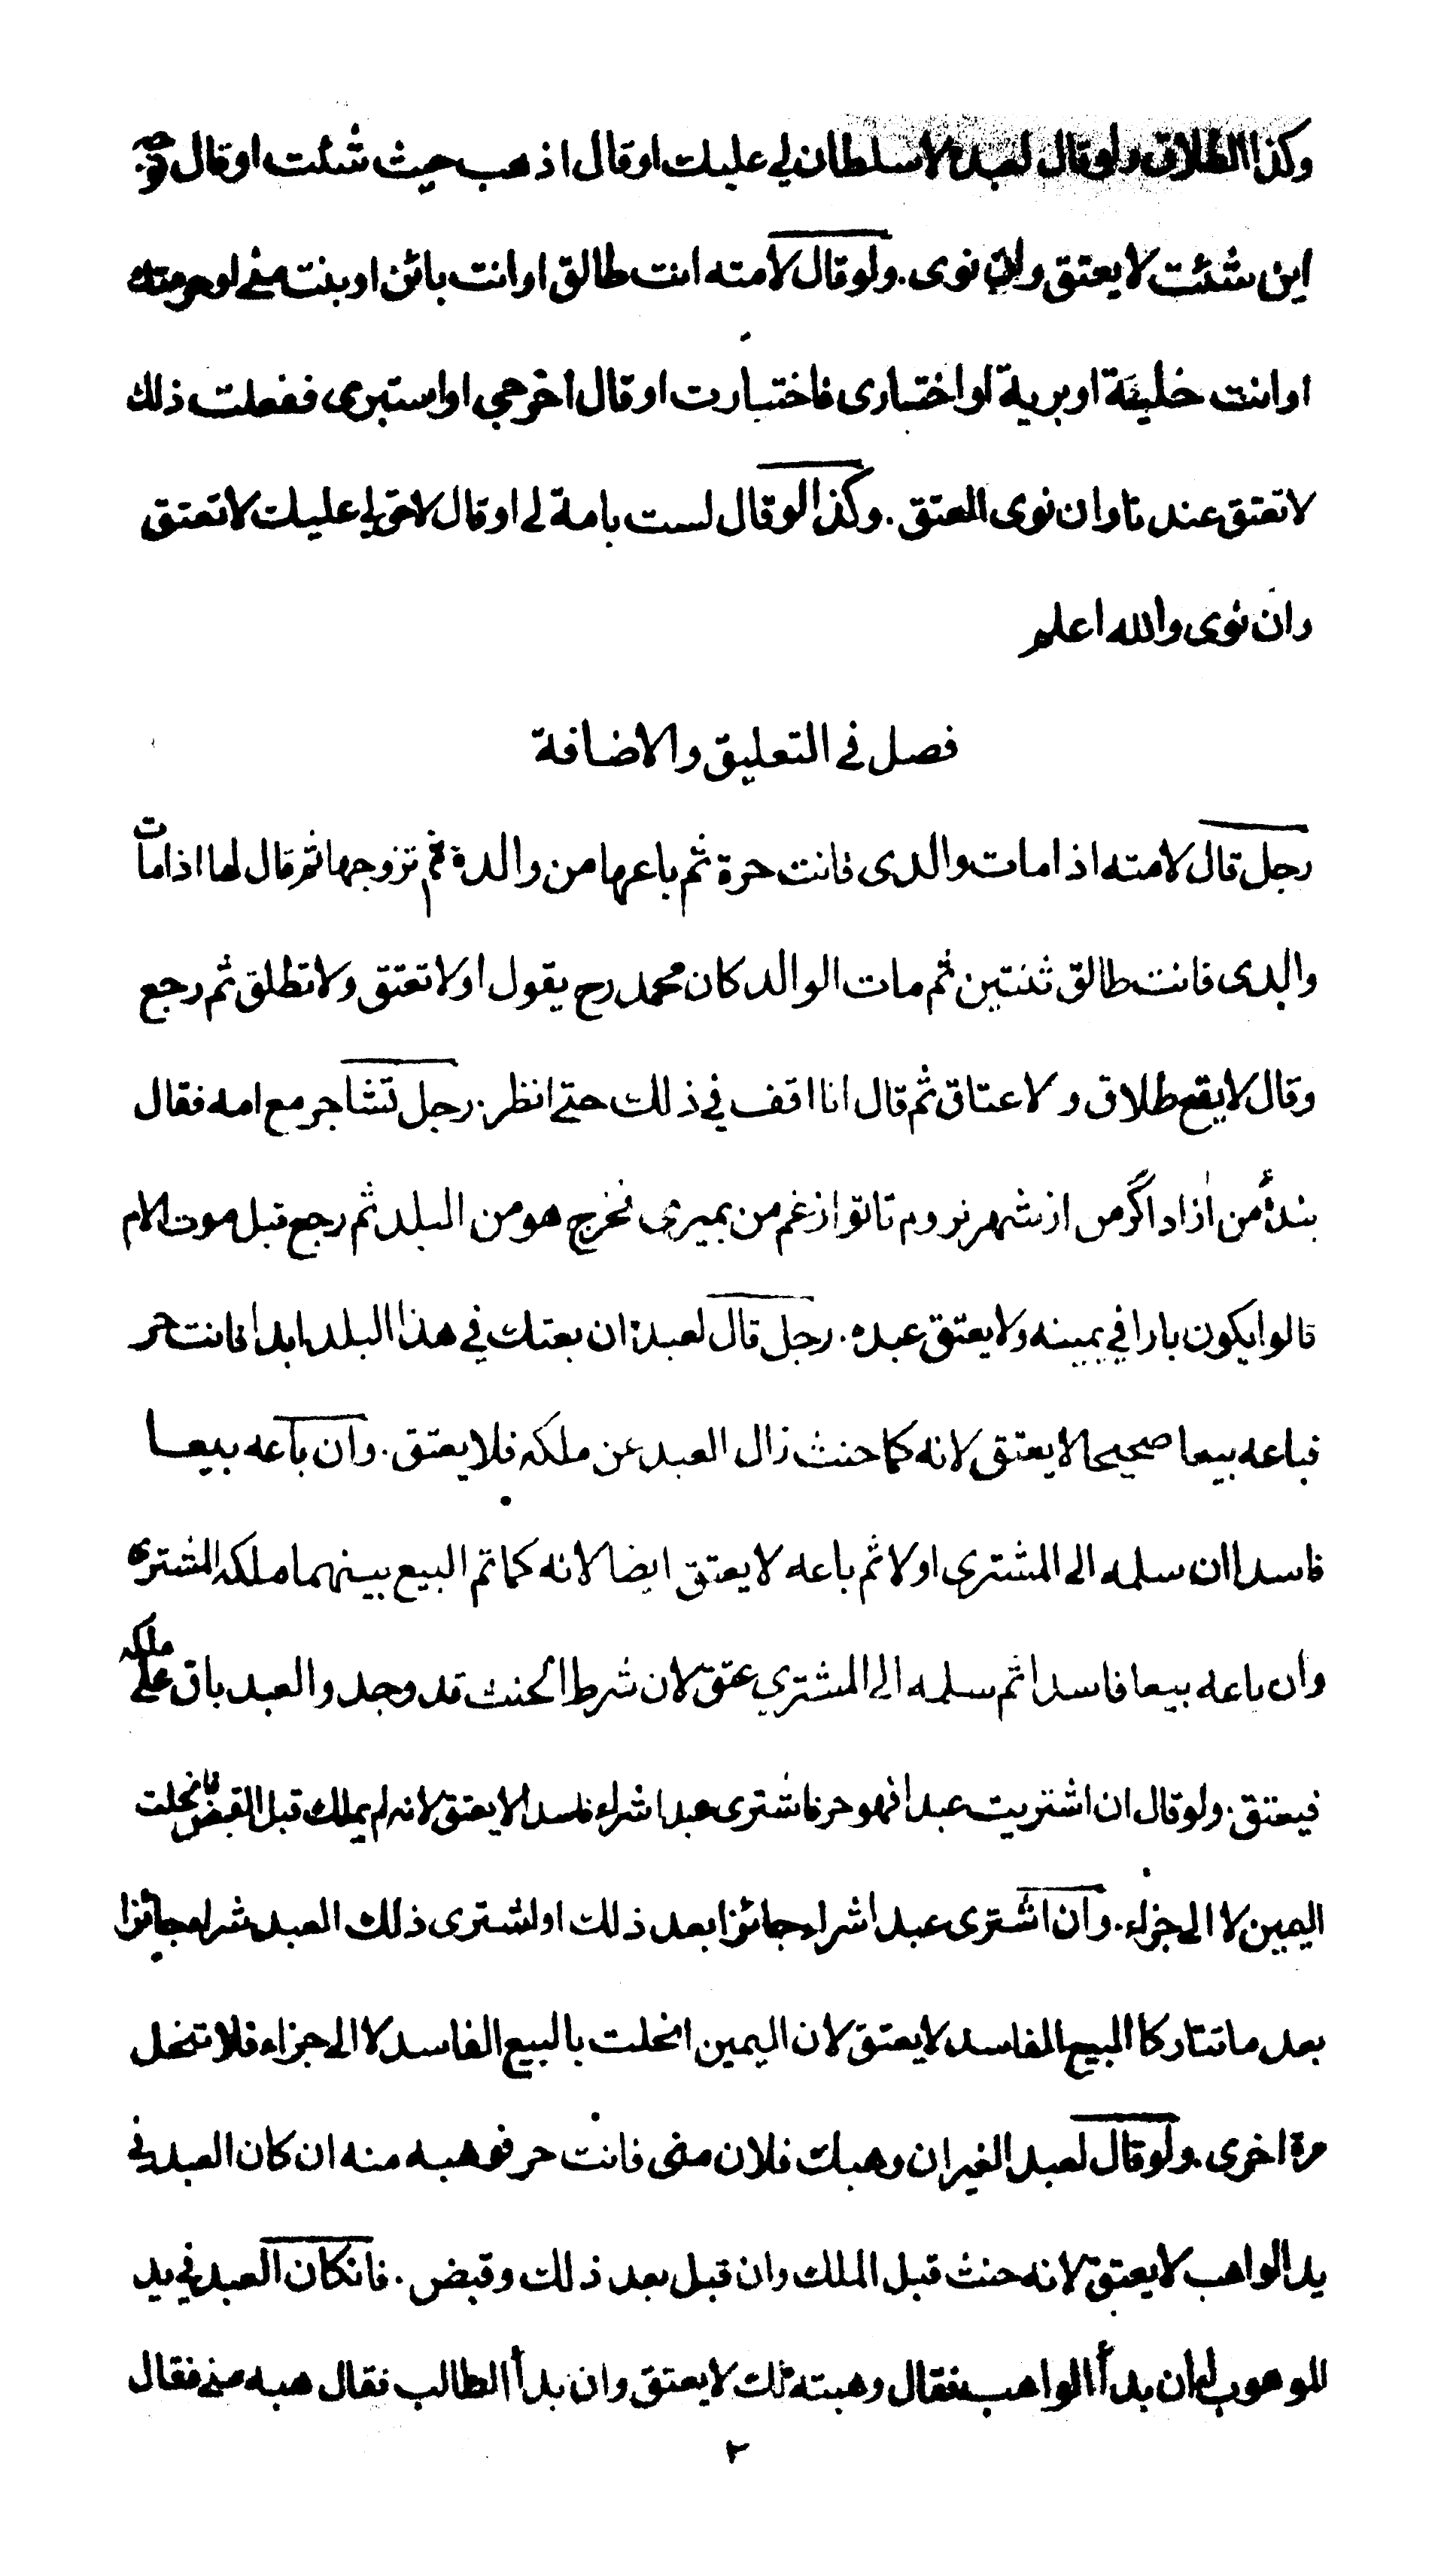 وكذا الطلاق ولو قال لعبده لا سلطان لي عليك او قال اذهب حيث شئت او قال توجه
اين شئت لا يعتق وان نوى . ولو قال لامته انت طالق او انت بائن او بنت مني او حرمتك
او انت خلية او برية او اختارى فاختارت او قال اخرجي او استبرى ففعلت ذلك
لا تعتق عندنا وان نوى العتق . وكذا لو قال لست بامة لي او قال لا حق لي عليك لا تعتق
وان نوى والله اعلم
فصل في التعليق والاضافة
رجل قال لامته اذا مات والدى فانت حرة ثم باعها من والده ثم تزوجها ثم قال لها اذا مات
والدى فانت طالق ثنتين ثم مات الوالد كان محمد رح يقول اولا تعتق ولا تطلق ثم رجع
وقال لا يقع طلاق ولا عتاق ثم قال انا اقف في ذلك حتى انظر . رجل تشاجر مع امه فقال
بندۀ من آزاد اگر من از شهر نروم تا تو از غم من بميرى فخرج هو من البلد ثم رجع قبل موت الام
قالوا يكون بارا في يمينه ولا يعتق عبده . رجل قال لعبده ان بعتك في هذا البلد ابدا فانت حر
فباعه بيعا صحيحا لا يعتق لانه كما حنث زال العبد عن ملكه فلا يعتق . وان باعه بيعا
فاسدا ان سلمه الى المشترى اولا ثم باعه لا يعتق ايضا لانه كما تم البيع بينهما ملكه المشترى
وان باعه بيعا فاسدا ثم سلمه الى المشتري عتق لان شرط الحنث قد وجد والعبد باق على ملكه
فيعتق . ولو قال ان اشتريت عبدا فهو حر فاشترى عبدا شراء فاسدا لا يعتق لانه لم يملك قبل القبض فانحلت
اليمين لا الى جزاء . وان اشترى عبدا شراء جائزا بعد ذلك او اشترى ذلك العبد شراء جائزا
بعد ما تتاركا البيع الفاسد لا يعتق لان اليمين انحلت بالبيع الفاسد لا الى جزاء فلا تنحل
مرة اخرى . ولو قال لعبد الغير ان وهبك فلان منى فانت حر فوهبه منه ان كان العبد في
يد الواهب لا يعتق لانه حنث قبل الملك وان قبل بعد ذلك وقبض . فانكان العبد في يد
الموهوب له ان بدأ الواهب فقال وهبته لك لا يعتق وان بدأ الطالب فقال هبه مني فقال
٢